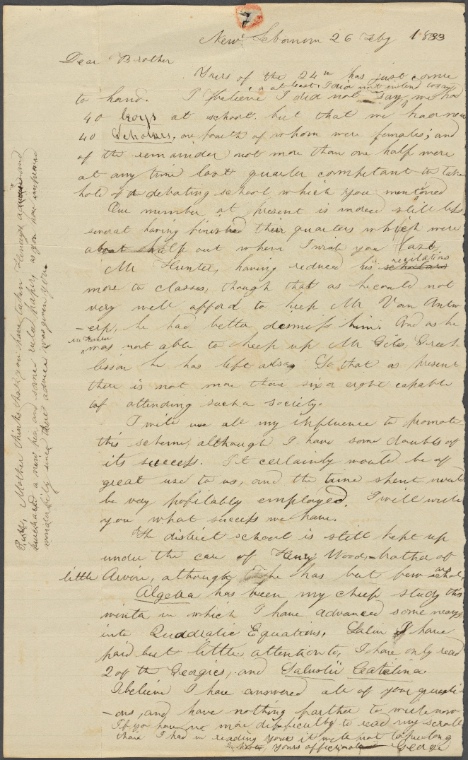 New Lebanon 26 Feby 1833
Dear Brother
Yours of the 24th has just come
to hand. I believe I did not say, we had
at least I did not intend to say
40 boys at school but that we had now
40 scholars, one fourth of whom were females; and
of the remainder not more than one half were
at any time last quarter competent to take
hold of a debating school which you mentioned
Our number at present is indeed still less
most having finished their quarters which were
about half out when I wrote you last.
Mr Hunter, having reduced his recitations
more to classes, though that as he could not
very well afford to keep Mr Van Antw
-erp, he had better dismiss him. And as he
was not able to keep up Mr Gets. French
lesson he has left also. So that at present
there is not more than six or eight capable
of attending such a society.
I will use all my influence to promote
this scheme although I have some doubts of
its success. It certainly would be of
great use to us, and the time spent would
be very profitably employed. I will write
you what success we have.
Th district school is still kept up
under the care of Henry Woods—brother of
little Alvin, although he has but few scholars
Algebra has been my chief study this
winter in which I have advanced some ways
into Quadratic Equations. Latin I have
paid but little attention to, I have only read
2 of the Georgics, and Salustii Catalina
I believe I have answered all of your questi
-ons, and have nothing farther to write now
If you have no more difficulty to read my scrawl
than I had in reading yours it will not be
Yours affectionate George
Mother thinks that you have taken
purchased a new pen and some ruled paper, as you have improved
wonderfully since there